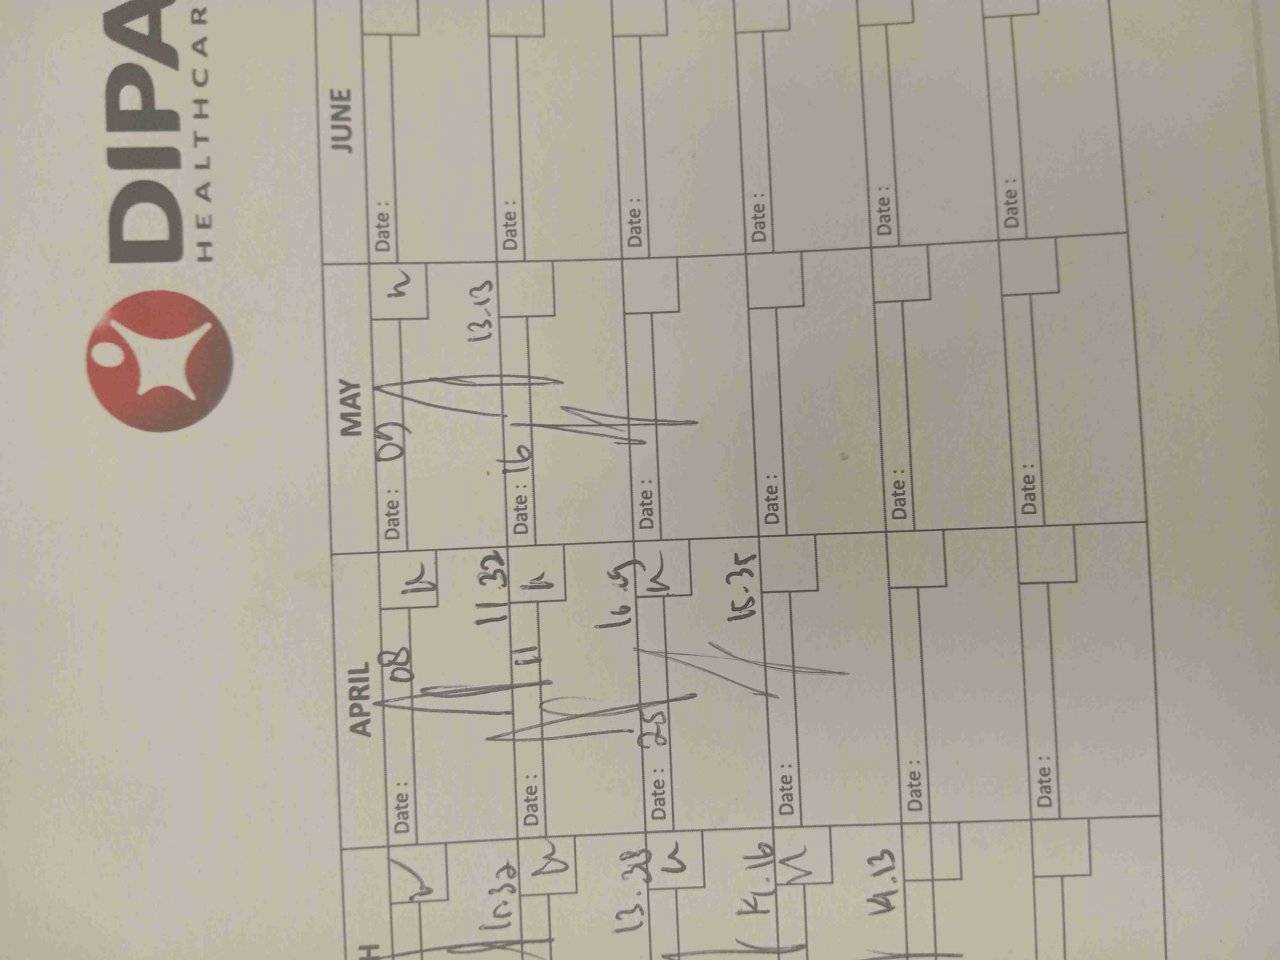 DIPA
HEALTHCAR
H APRIL MAY JUNE
Date : 08 Date : 07 Date :
10.32 11.32 13.13
Date : 11 Date : 16 Date :
13.38 16.19
Date : 25 Date : Date :
14.16 15.35
Date : Date : Date :
14.13
Date : Date : Date :
Date : Date : Date :